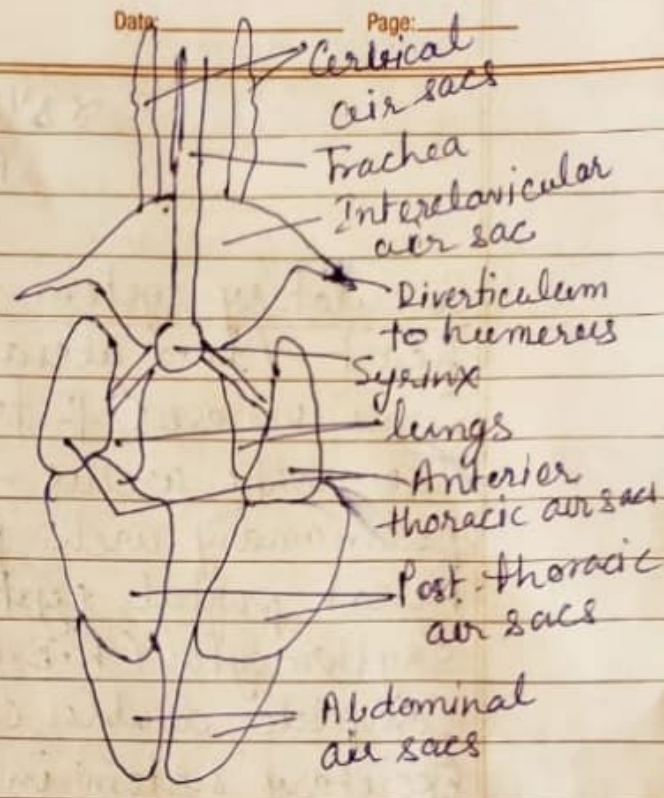 Date: Page:
Cervical
air sacs
Trachea
Interclavicular
air sac
Diverticulum
to humerus
Syrinx
lungs
Anterier
thoracic air sacs
Post. thoracic
air sacs
Abdominal
air sacs